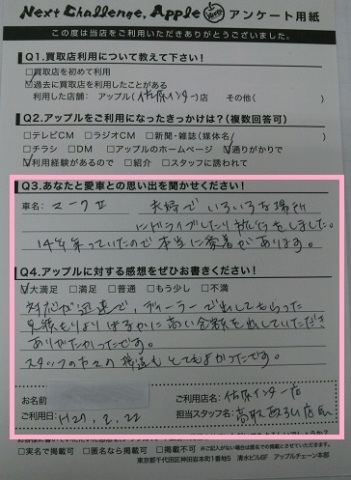 Next Challenge, Apple アンケート用紙
この度は当店をご利用いただきありがとうございました。
Q1.買取店利用について教えて下さい!
□買取店を初めて利用
☑過去に買取店を利用したことがある
利用した店舗:アップル(佐原インター)店 その他( )
Q2.アップルをご利用になったきっかけは?(複数回答可)
□テレビCM □ラジオCM □新聞・雑誌(媒体名 ) ☑通りがかりで
□チラシ □DM □アップルのホームページ
☑利用経験があるので □紹介 □スタッフに誘われて
Q3.あなたと愛車との思い出を聞かせください!
車名:マークⅡ 夫婦でいろいろな場所
にドライブしたり旅行もしました。
14年乗っていたので本当に愛着があります。
Q4.アップルに対する感想をぜひお書きください!
☑大満足 □満足 □普通 □もう少し □不満
対応が迅速で、ディーラーで出してもらった
見積もりよりはるかに高い金額を出していただき
ありがたかったです。
スタッフの方々の接遇もとてもよかったです。
お名前
ご利用店名:佐原インター店
ご利用日:H27.2.22
担当スタッフ名:高取 店長
□実名で掲載可 □匿名なら掲載可 □掲載不可
東京都千代田区神田岩本町1番地5 清水ビル6F アップルチェーン本部